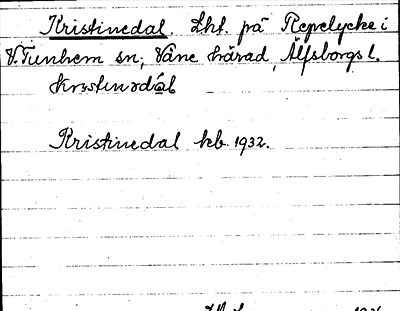 Kristinedal. Lht. på Repelycke i
V. Tunhem sn, Väne härad, Älfsborgs l.
Kristinedal kb. 1932.